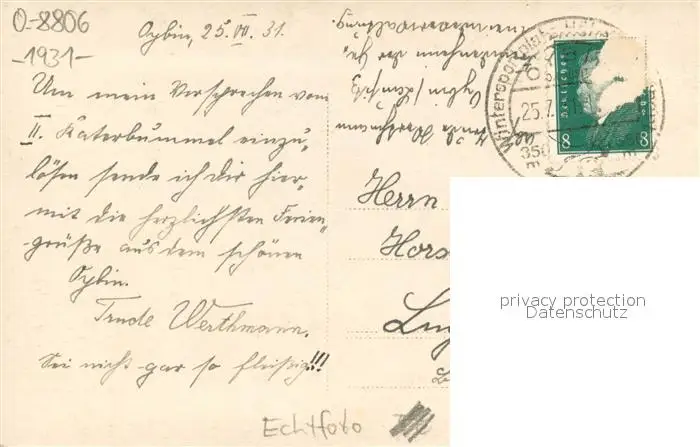 O-8806
-1931-
Oybin, 25. VII. 31.
Um mein Versprechen vom
II. Katerbummel einzu„
lösen sende ich dir hier„
mit die herzlichsten Ferien„
grüße aus dem schönen
Oybin.
Trude Werthmann.
Sei nicht gar so fleißig!!!
Oybin
der
Wintersportplatz
25.7.
350
Deutsches
8 8
Herrn
Hors
Lug
privacy protection
Datenschutz
Echtfoto